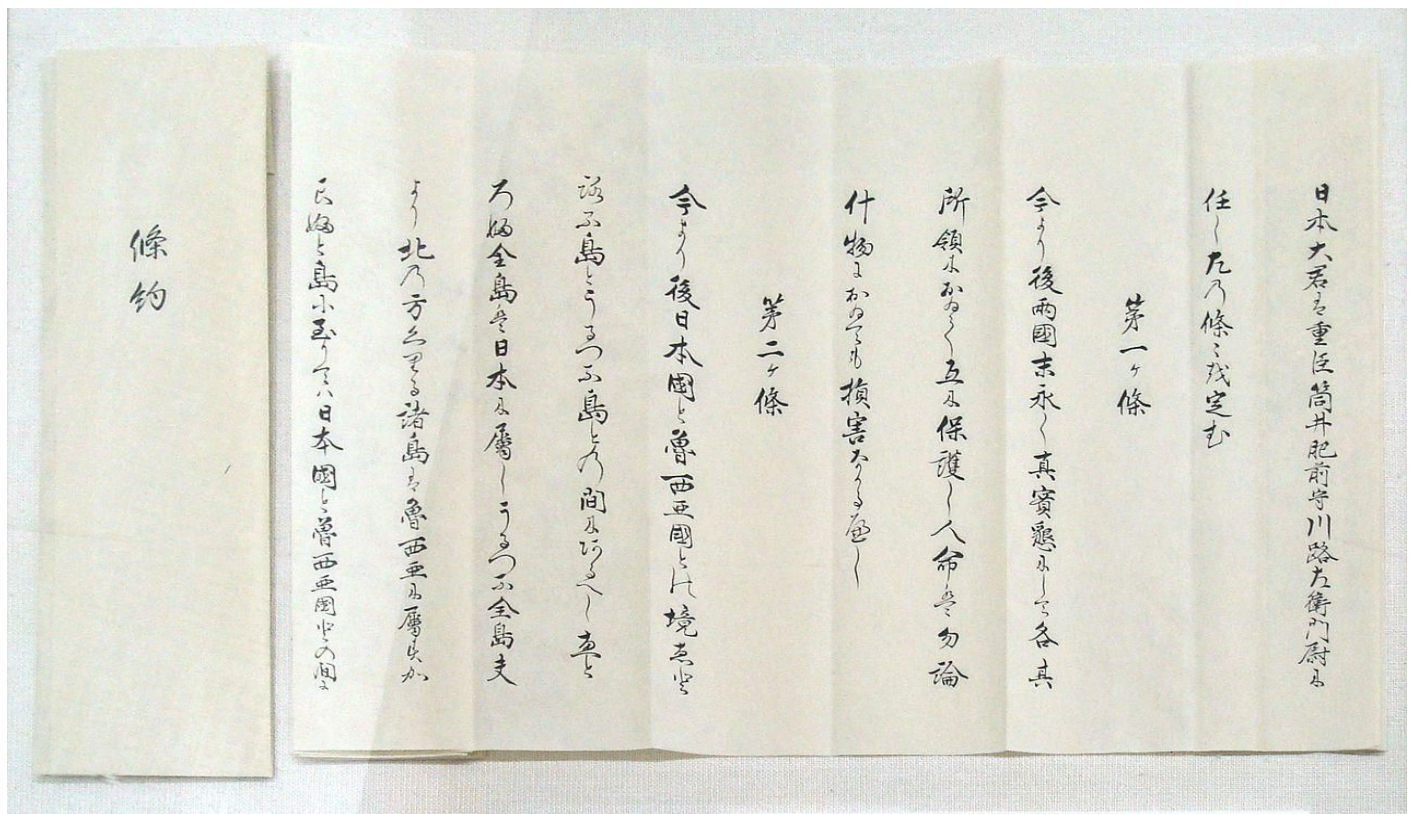 日本大君は重臣筒井肥前守川路左衛門尉に
任し左の條々を定む
第一ヶ條
今より後両國末永く真實懇にして各其
所領におゐて互に保護し人命は勿論
什物におゐても損害なかるへし
第二ヶ條
今より後日本國と魯西亜國との境ゑと
ろふ島とうるつふ島との間にあるへしゑと
ろふ全島は日本に属しうるつふ全島夫
より北の方クリル諸島は魯西亜に属すカ
ラフト島に至りては日本國と魯西亜國との間に
條約